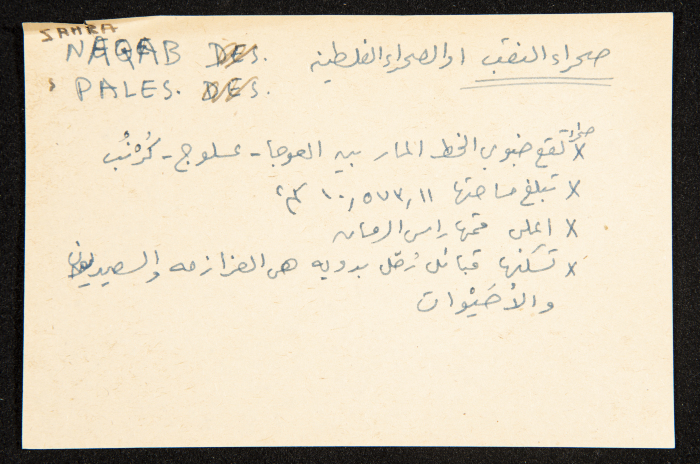 SAMRA
NAQAB DES. صحراء النقب او الصحراء الفلسطينية
PALES. DES.
صحراء
x تقع جنوبي الخط المار بين العوجا - عسلوج - كُرْنُب
x تبلغ مساحتها ١٠,٥٧٧,١١ كم٢
x اعلى قممها راس الرمان
x تسكنها قبائل رُحّل بدوية هى العزازمه والسعيديون
والأُحَيْوات